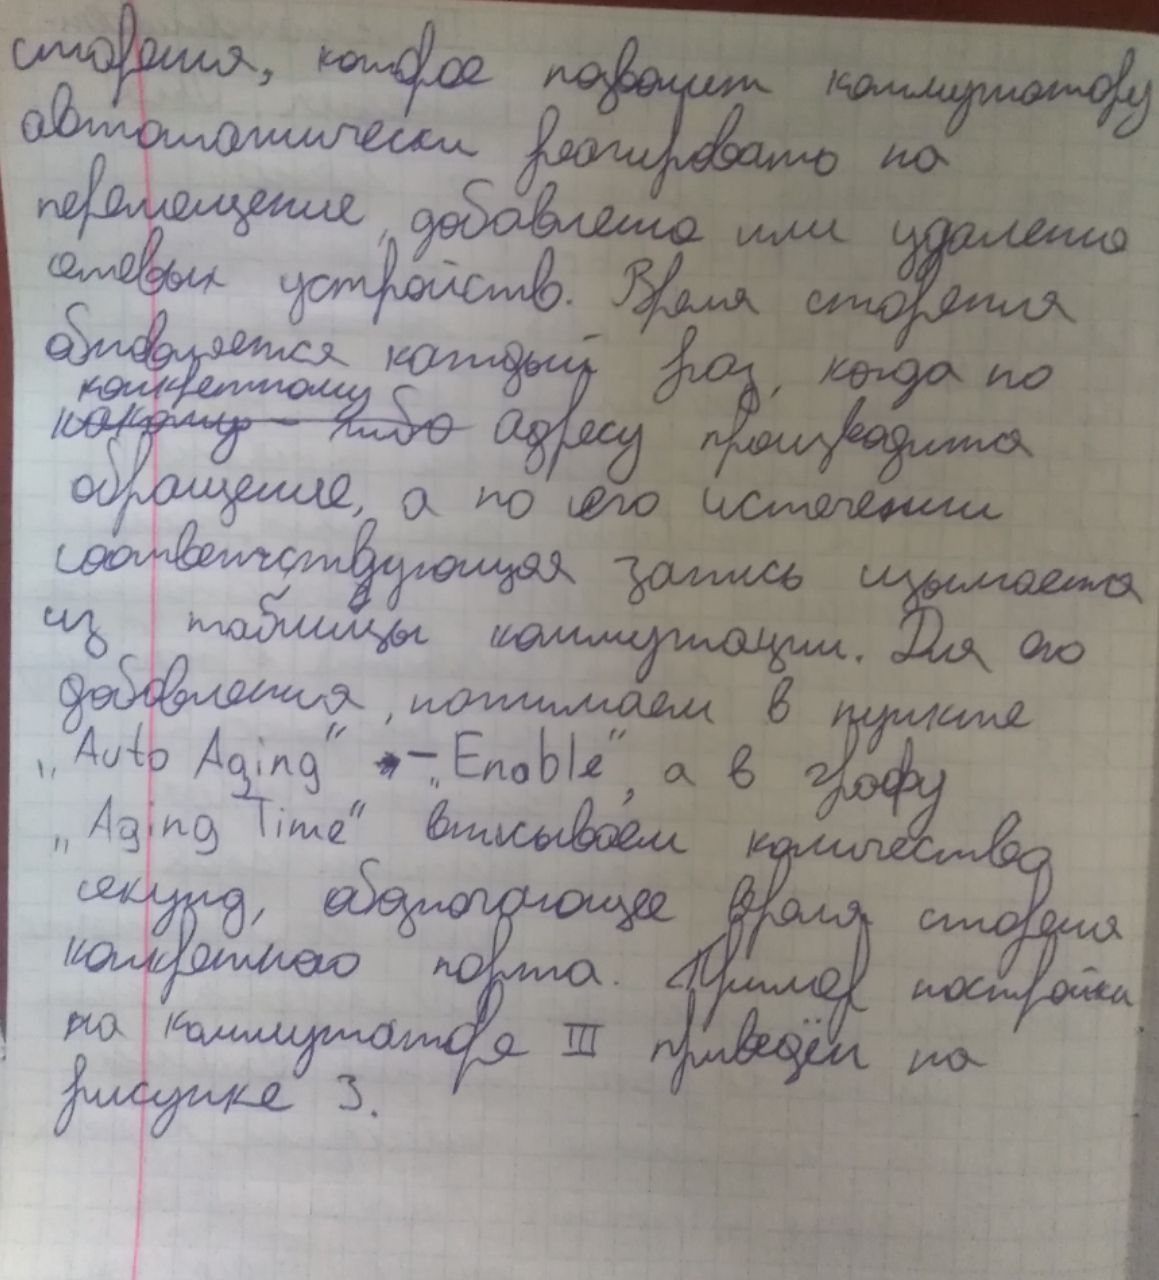 старения, которое позволит коммутатору
автоматически реагировать на
перемещение, добавление или удаление
сетевых устройств. Время старения
обновляется каждый раз, когда по
конкретному
какому-либо адресу производится
обращение, а по его истечении
соответствующая запись изымается
из таблицы коммутации. Для его
добавления, нажимаем в пункте
„Auto Aging" - „Enable", а в графу
„Aging Time" вписываем количество
секунд, обозначающее время старения
конкретного порта. Пример настройки
на коммутаторе III приведён на
рисунке 3.